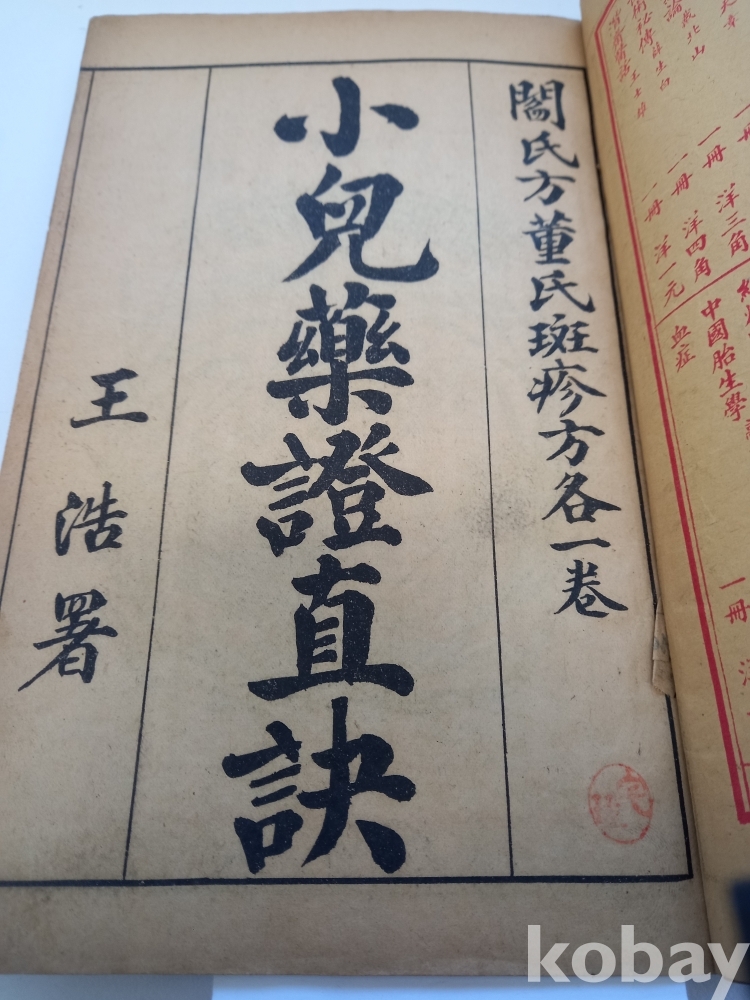 閻氏方董氏斑疹方各一卷
小兒藥證直訣
王浩署
北山
一冊 洋三角
一冊 洋四角
一冊 洋一元
中國胎生學
血症
一冊
kobay